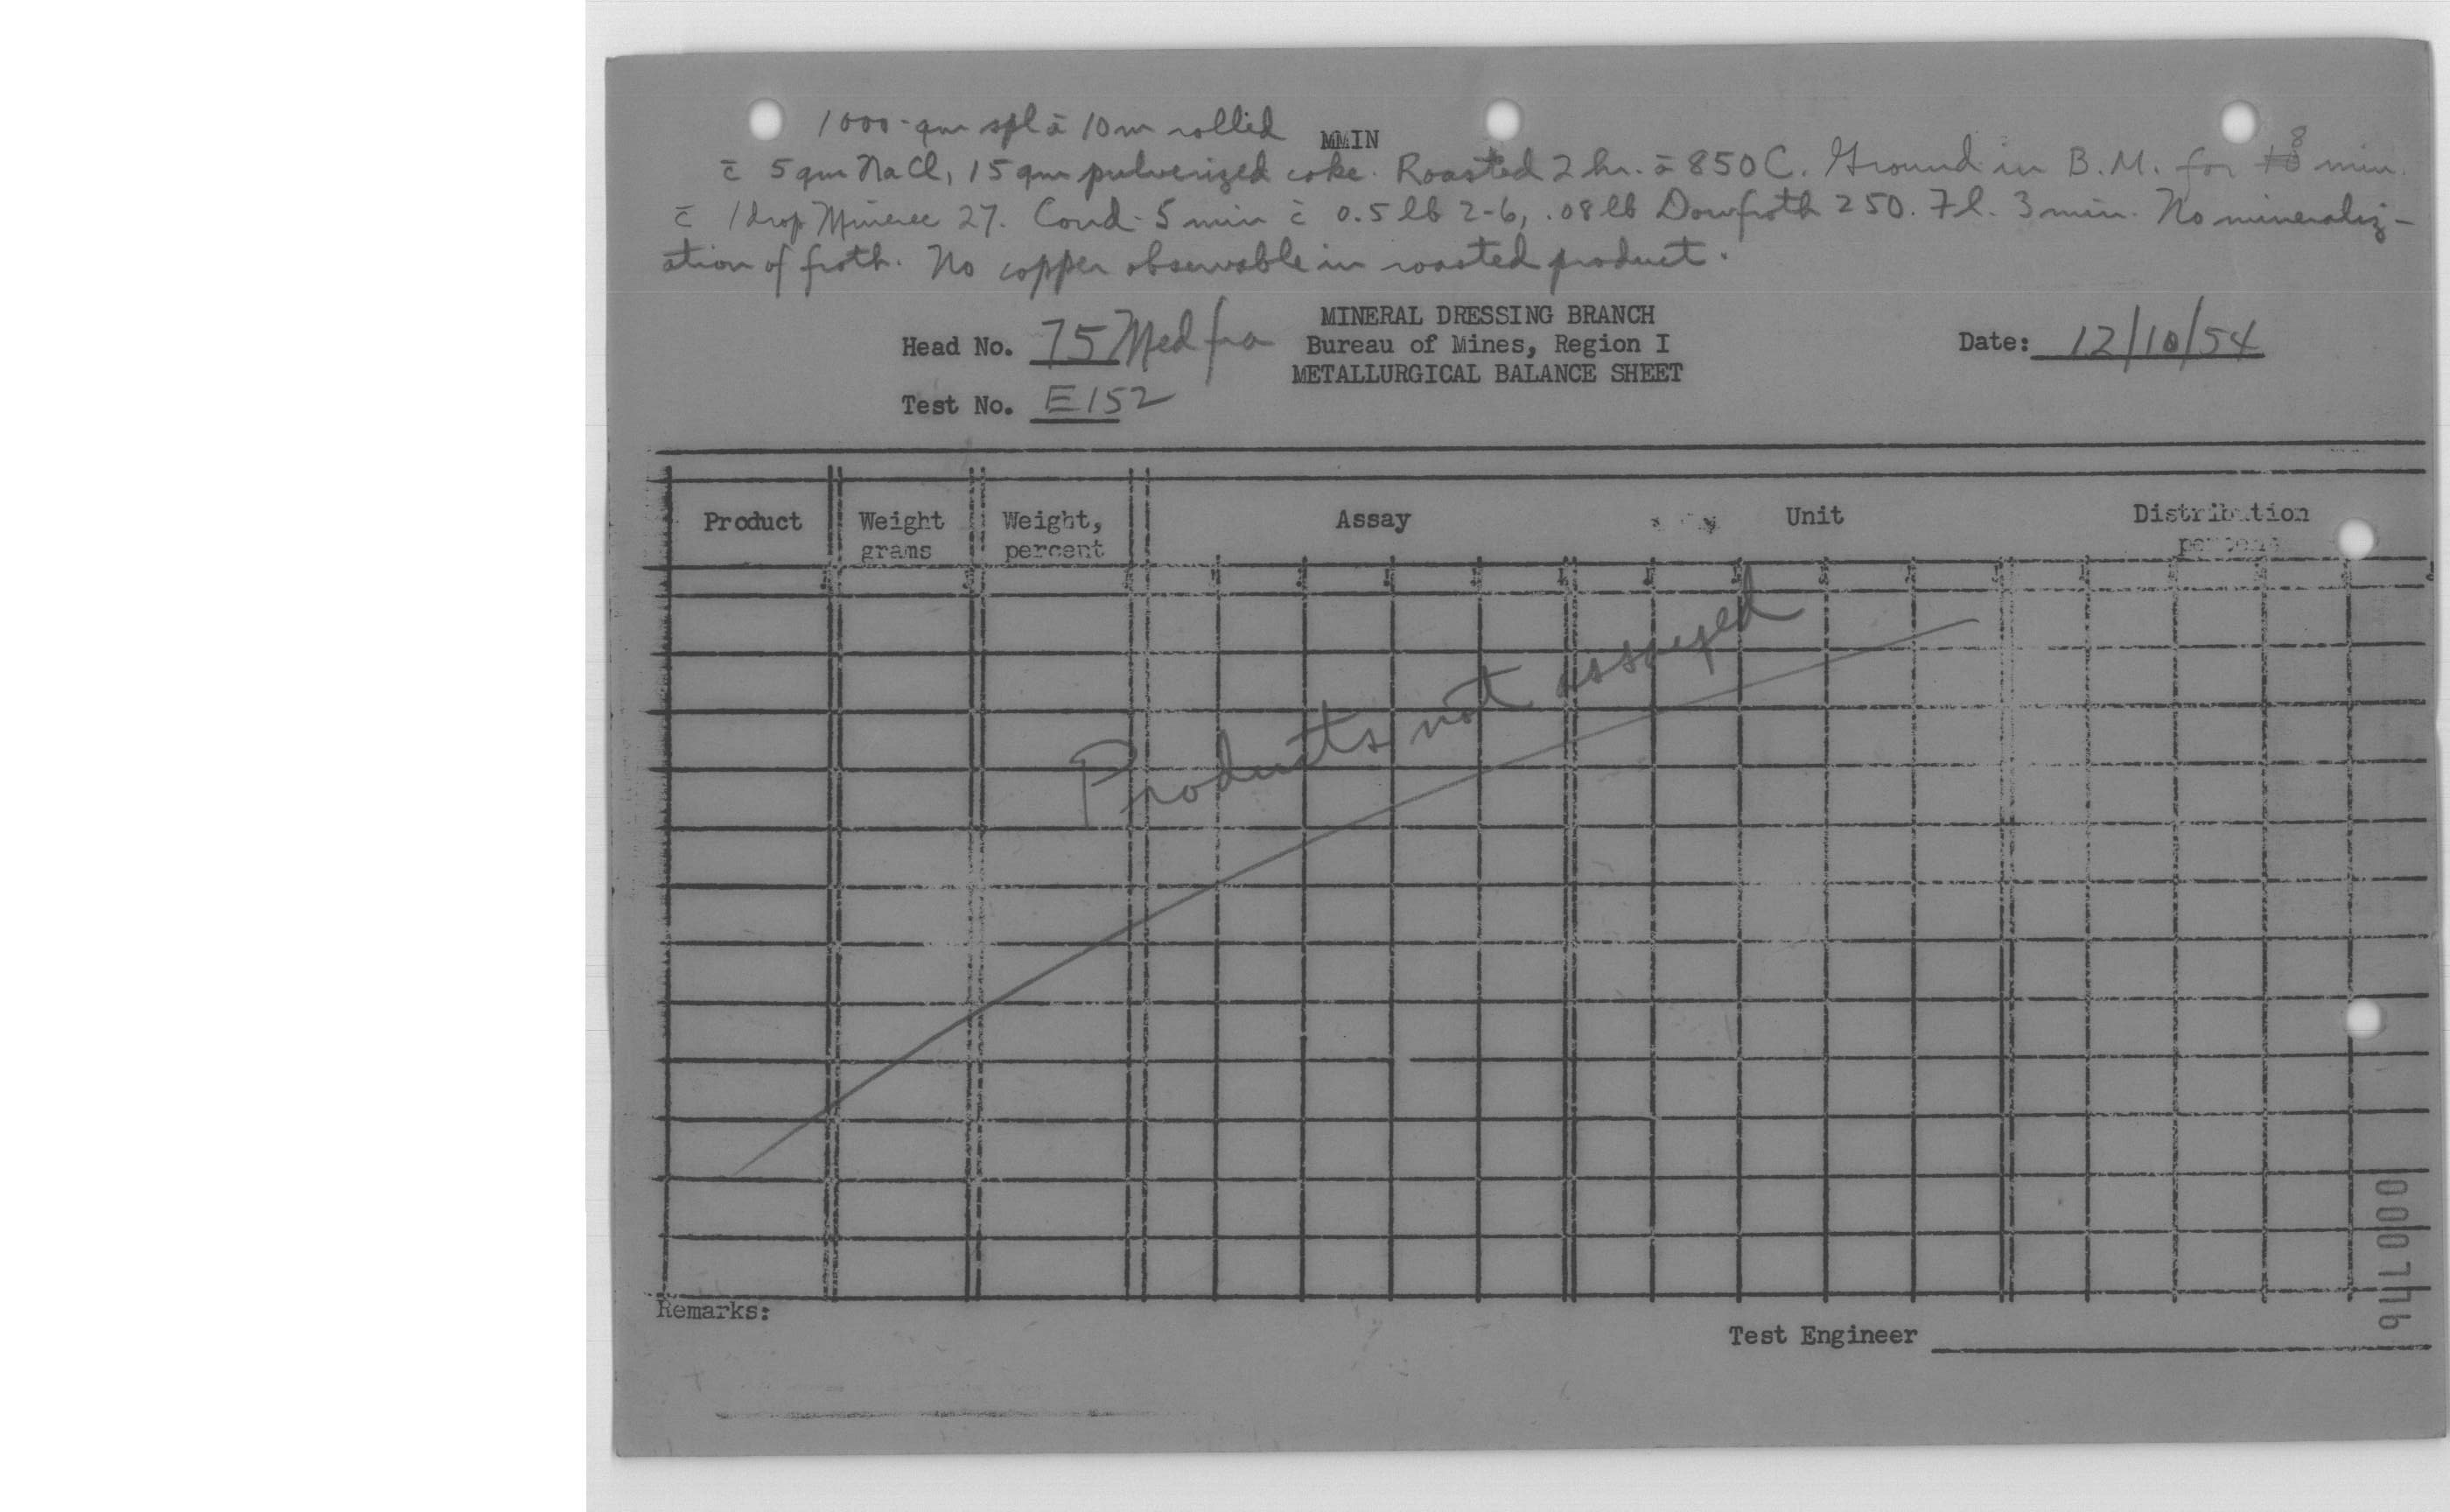 1000-gm spl ā 10m rolled MMIN
c̄ 5 gm NaCl, 15 gm pulverized coke. Roasted 2 hr. ā 850 C. Ground in B.M. for 8 min.
c̄ 1 drop Minerec 27. Cond. 5 min c̄ 0.5 lb Z-6, .08 lb Dowfroth 250. Fl. 3 min. No mineraliz-
ation of froth. No copper observable in roasted product.
MINERAL DRESSING BRANCH
Head No. 75 Medfra Bureau of Mines, Region I Date: 12/10/54
METALLURGICAL BALANCE SHEET
Test No. E152
Product Weight grams Weight, percent Assay Unit Distribution percent
Products not assayed
Remarks:
Test Engineer